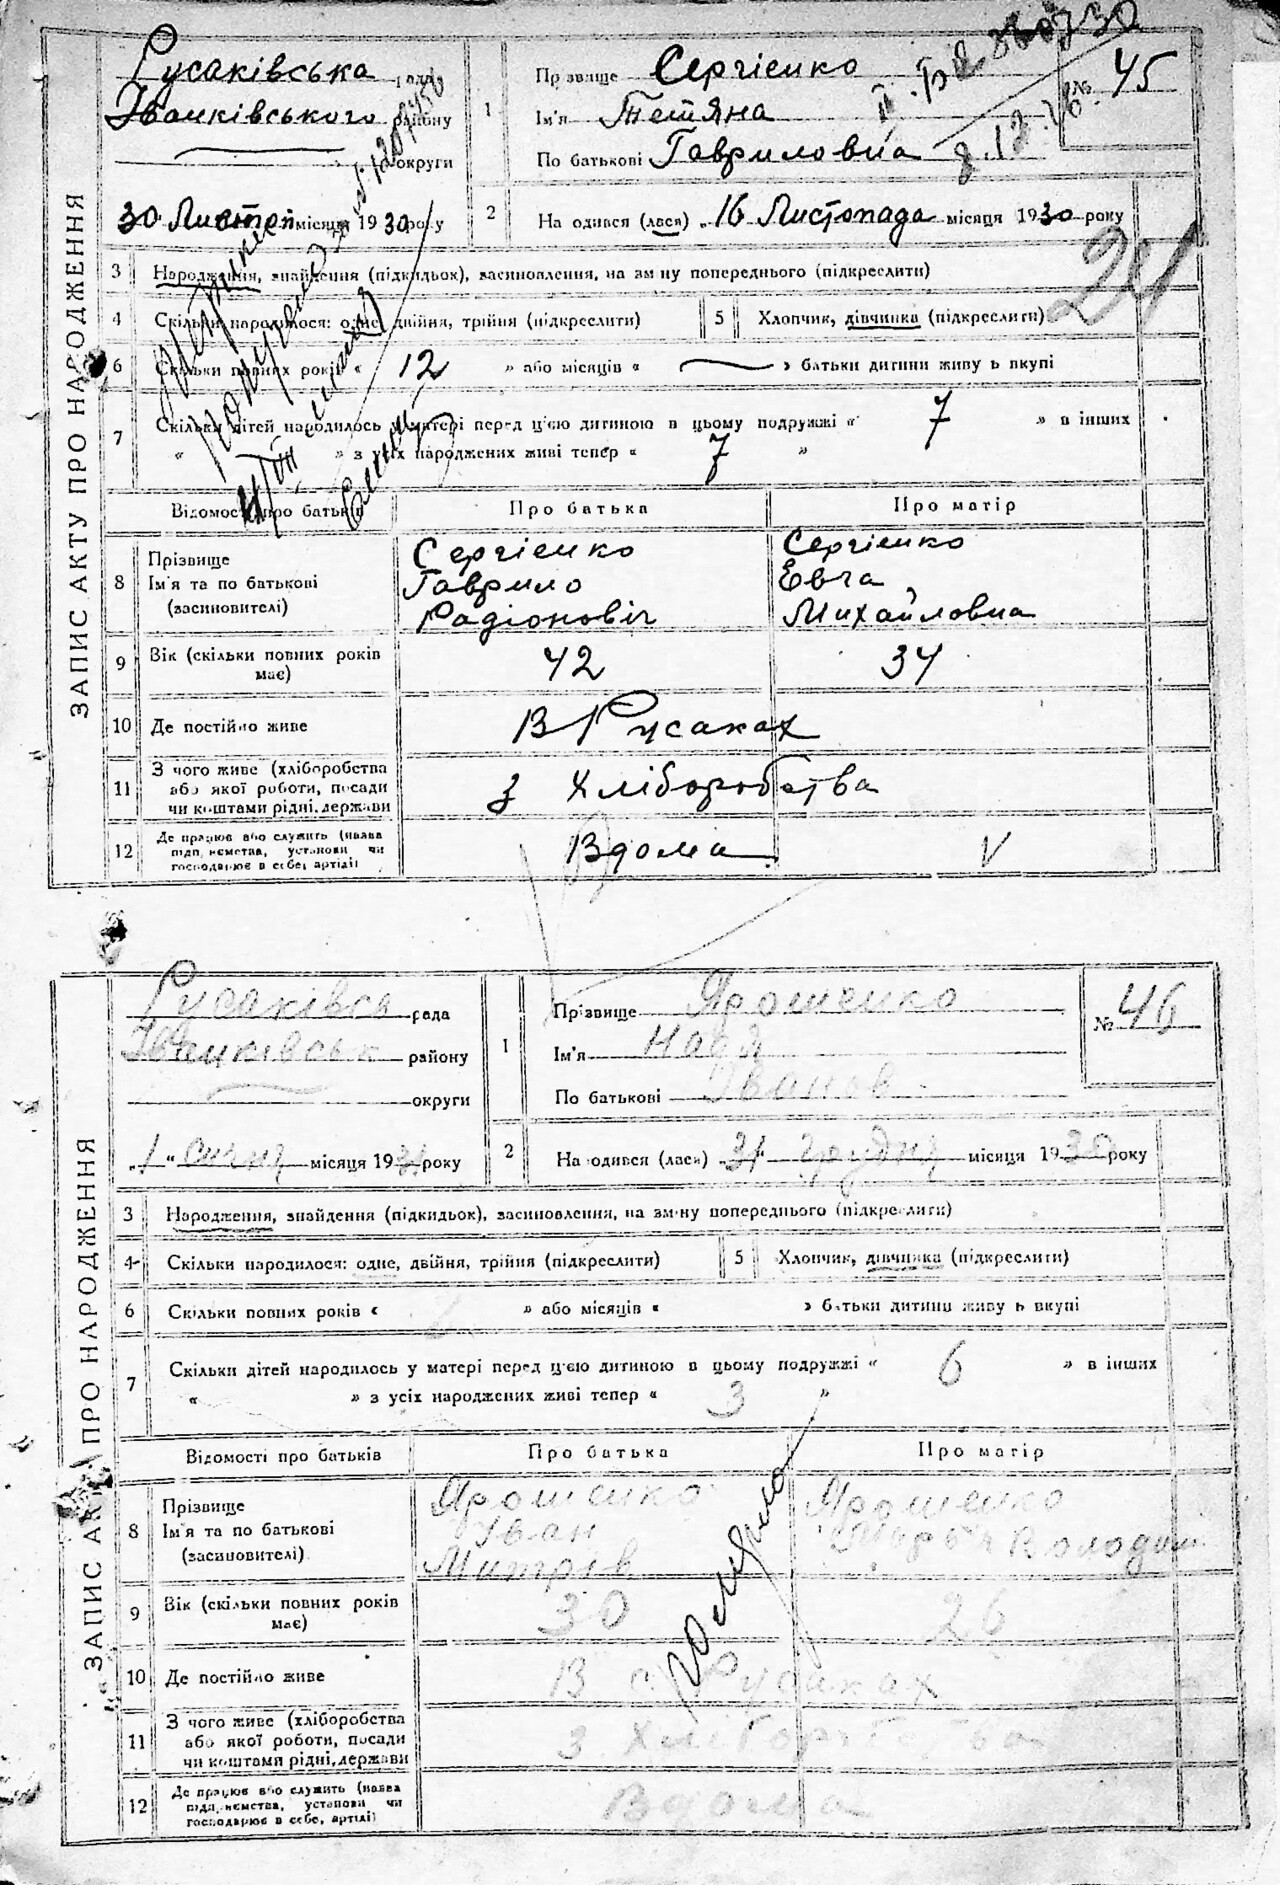 ЗАПИС АКТУ ПРО НАРОДЖЕННЯ
Русаківська рада
Іванківського району
округи
30 Листоп місяця 1930 року
1 Прізвище Сергієнко
Ім'я Тетяна
По батькові Гавриловна
№ 45
8.12.76.
2 На одився (лася) „16 Листопада місяця 1930 року
24
3 Народження, знайдення (підкидьок), засиновлення, на зміну попереднього (підкреслити)
4 Скільки народилося: одне, двійня, трійня (підкреслити)
5 Хлопчик, дівчинка (підкреслити)
6 Скільки повних років « 12 » або місяців « » батьки дитини живу ь вкупі
7 Скільки дітей народилось у матері перед ц'єю дитиною в цьому подружжі « 7 » в інших
« » з усіх народжених живі тепер « 7 »
Відомості про батьків Про батька Про матір
8 Прізвище Сергієнко Сергієнко
Ім'я та по батькові Гаврило Евга
(засиновителі) Радіоновіч Михайловна
9 Вік (скільки повних років має) 42 34
10 Де постійно живе В Русаках
11 З чого живе (хліборобства
або якої роботи, посади
чи коштами рідні, держави
з Хліборобства
12 Де працює або служить (назва
підп, ємства, установи чи
господарює в себе, артілі)
Вдома V
ЗАПИС АКТУ ПРО НАРОДЖЕННЯ
Русаківсь рада
Іванківськ району
округи
„1" січня місяця 1931 року
1 Прізвище Ярошенко
Ім'я Надя
По батькові Іванов
№ 46
2 На одився (лася) „31" грудня місяця 1930 року
3 Народження, знайдення (підкидьок), засиновлення, на зміну попереднього (підкреслити)
4 Скільки народилося: одне, двійня, трійня (підкреслити)
5 Хлопчик, дівчинка (підкреслити)
6 Скільки повних років « » або місяців « » батьки дитини живу ь вкупі
7 Скільки дітей народилось у матері перед ц'єю дитиною в цьому подружжі « 6 » в інших
« » з усіх народжених живі тепер « 3 »
Відомості про батьків Про батька Про матір
8 Прізвище Ярошенко Ярошенко
Ім'я та по батькові Іван
(засиновителі) Митрів
9 Вік (скільки повних років має) 30 26
10 Де постійно живе В с. Русаках
11 З чого живе (хліборобства
або якої роботи, посади
чи коштами рідні, держави
з Хліборобства
12 Де працює або служить (назва
підп, ємства, установи чи
господарює в себе, артілі)
Вдома